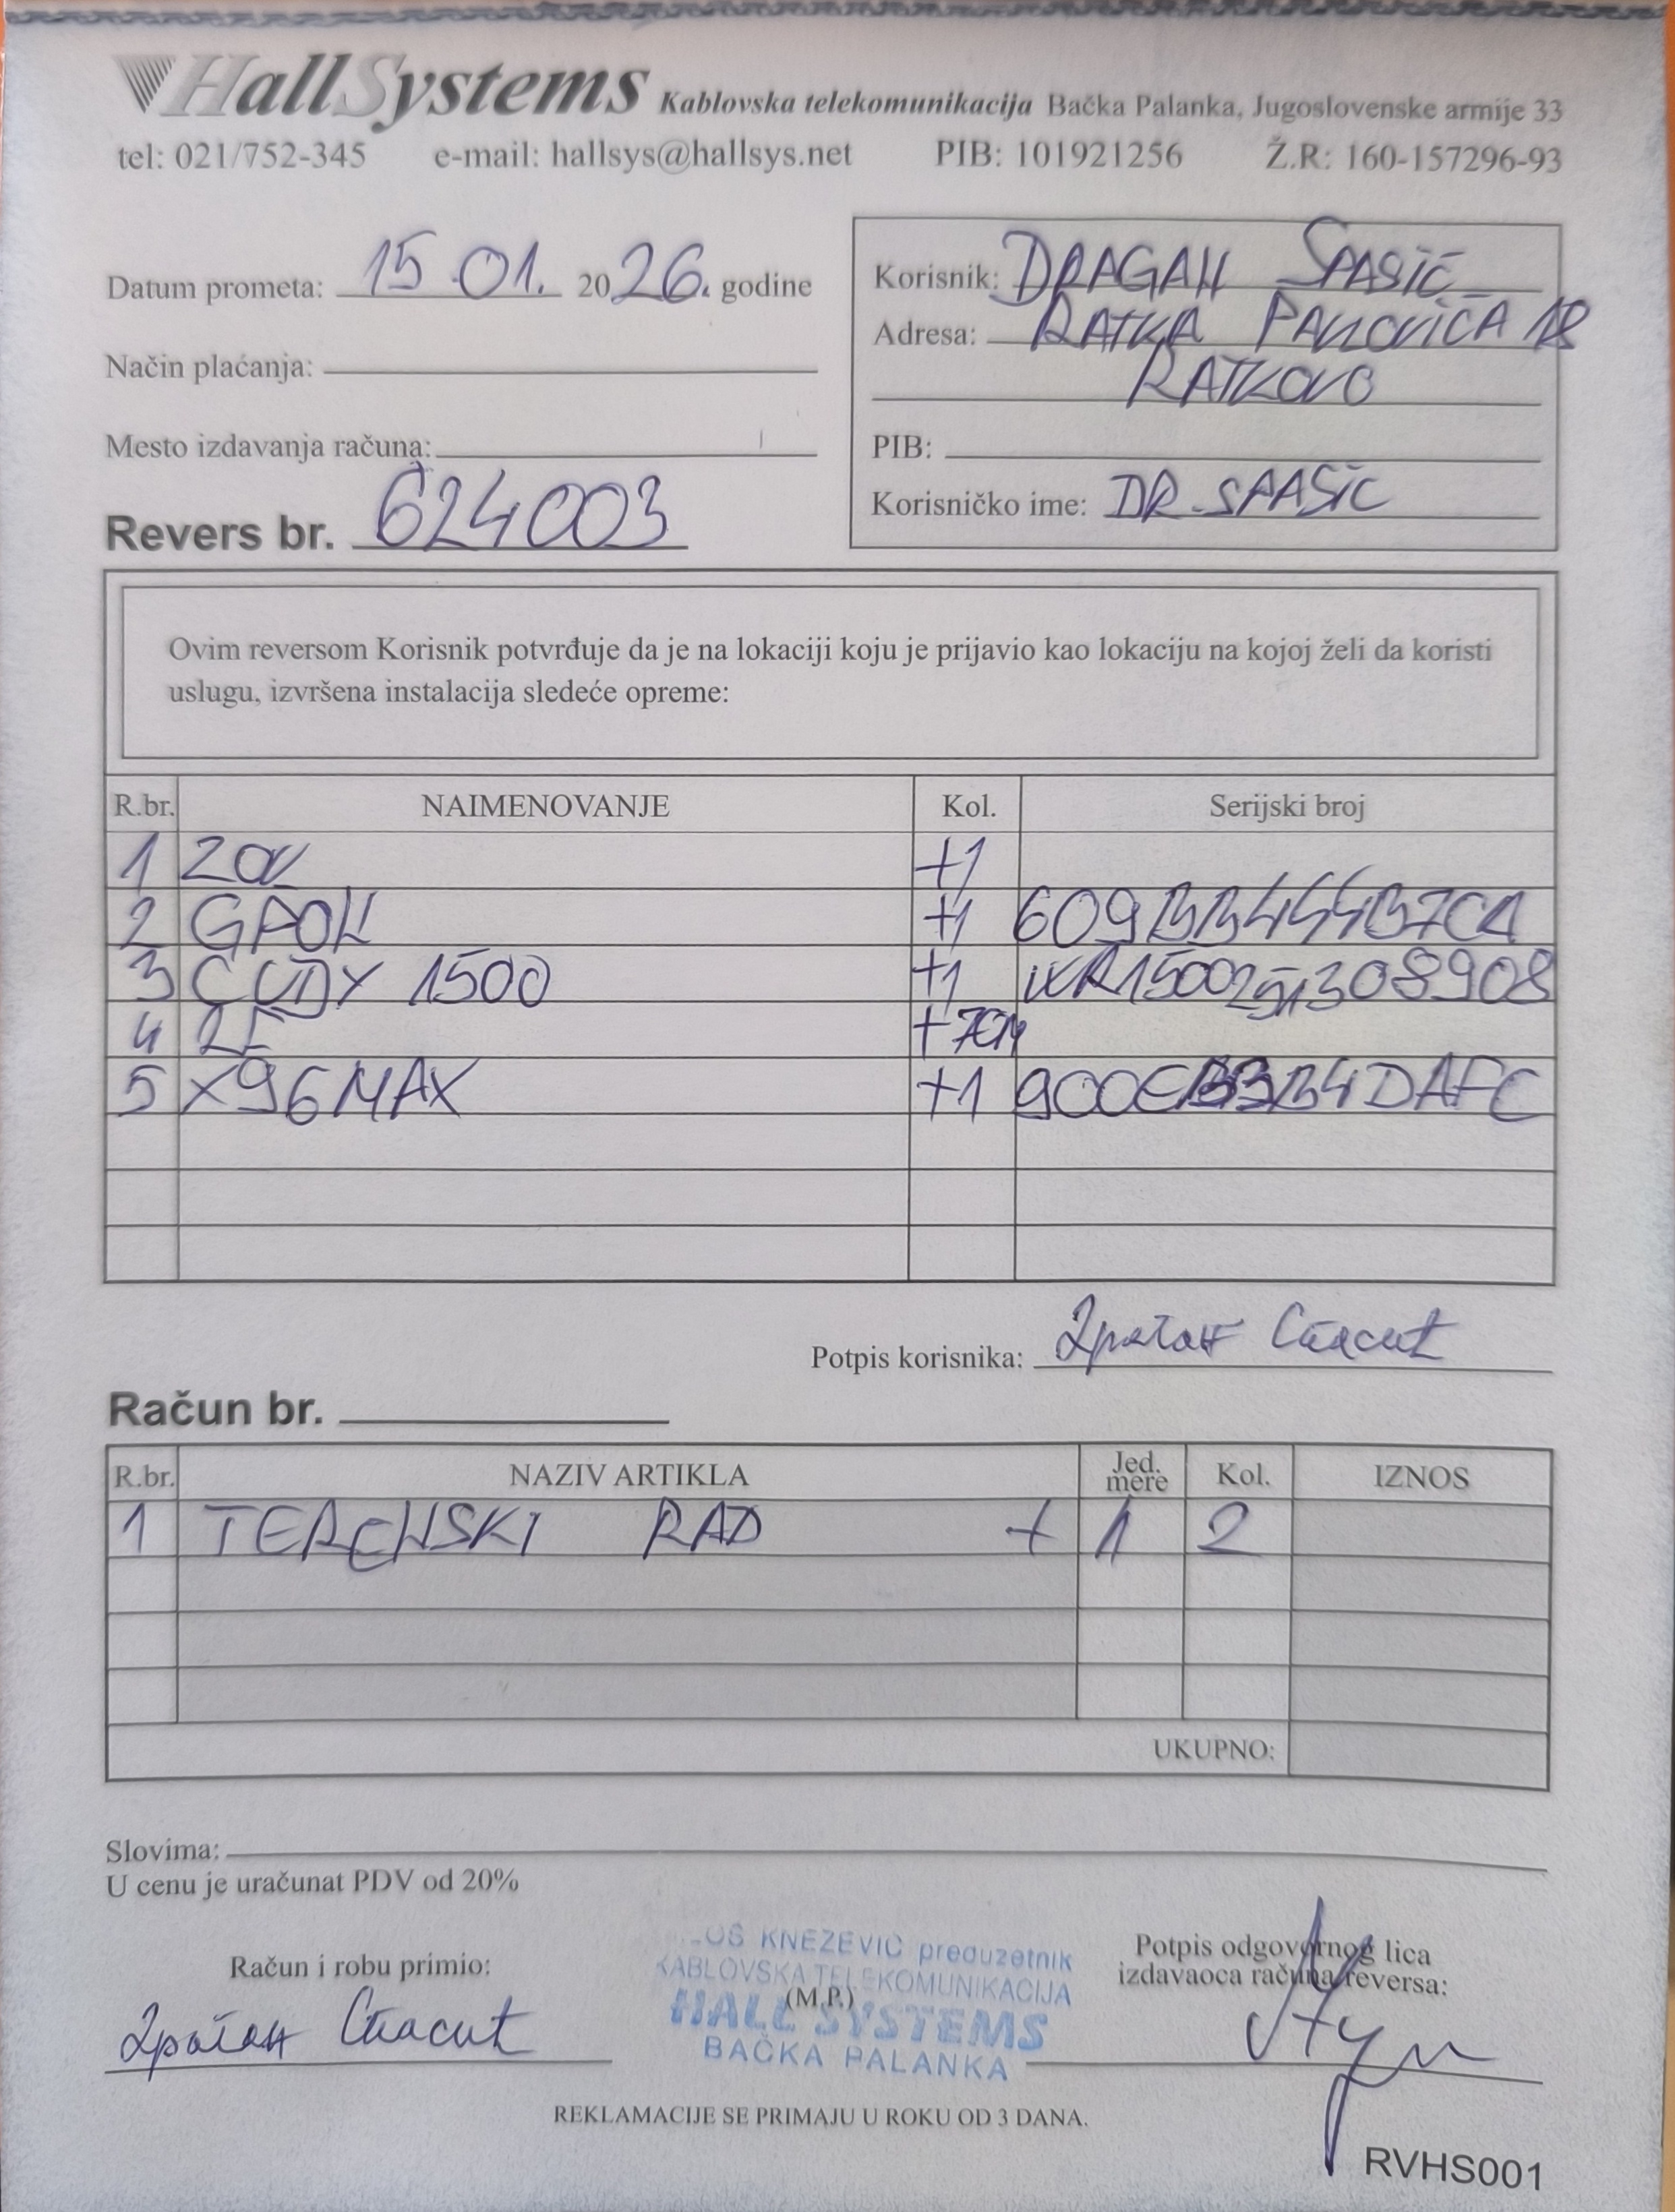 HallSystems Kablovska telekomunikacija Bačka Palanka, Jugoslovenske armije 33
tel: 021/752-345 e-mail: hallsys@hallsys.net PIB: 101921256 Ž.R: 160-157296-93
Datum prometa: 15 01. 2026. godine
Način plaćanja:
Mesto izdavanja računa:
Revers br. 624003
Korisnik: DRAGAN SPASIĆ
Adresa: RATKA PAVLOVIĆA 18
RATKOVO
PIB:
Korisničko ime: DR.SPASIC
Ovim reversom Korisnik potvrđuje da je na lokaciji koju je prijavio kao lokaciju na kojoj želi da koristi
uslugu, izvršena instalacija sledeće opreme:
R.br. NAIMENOVANJE Kol. Serijski broj
1 ZOK +1
2 GPON +1 609BB444B7CA
3 CUDY 1500 +1 WR1500251308908
4 2F +70M
5 X96MAX +1 900EB3B4DAFC
Potpis korisnika: Драган Спасић
Račun br.
R.br. NAZIV ARTIKLA Jed. mere Kol. IZNOS
1 TERENSKI RAD + 1 2
UKUPNO:
Slovima:
U cenu je uračunat PDV od 20%
Račun i robu primio:
Драган Спасић
KNEZEVIC preduzetnik
KABLOVSKA TELEKOMUNIKACIJA
(M.P.)
HALL SYSTEMS
BAČKA PALANKA
Potpis odgovornog lica
izdavaoca računa/reversa:
REKLAMACIJE SE PRIMAJU U ROKU OD 3 DANA.
RVHS001